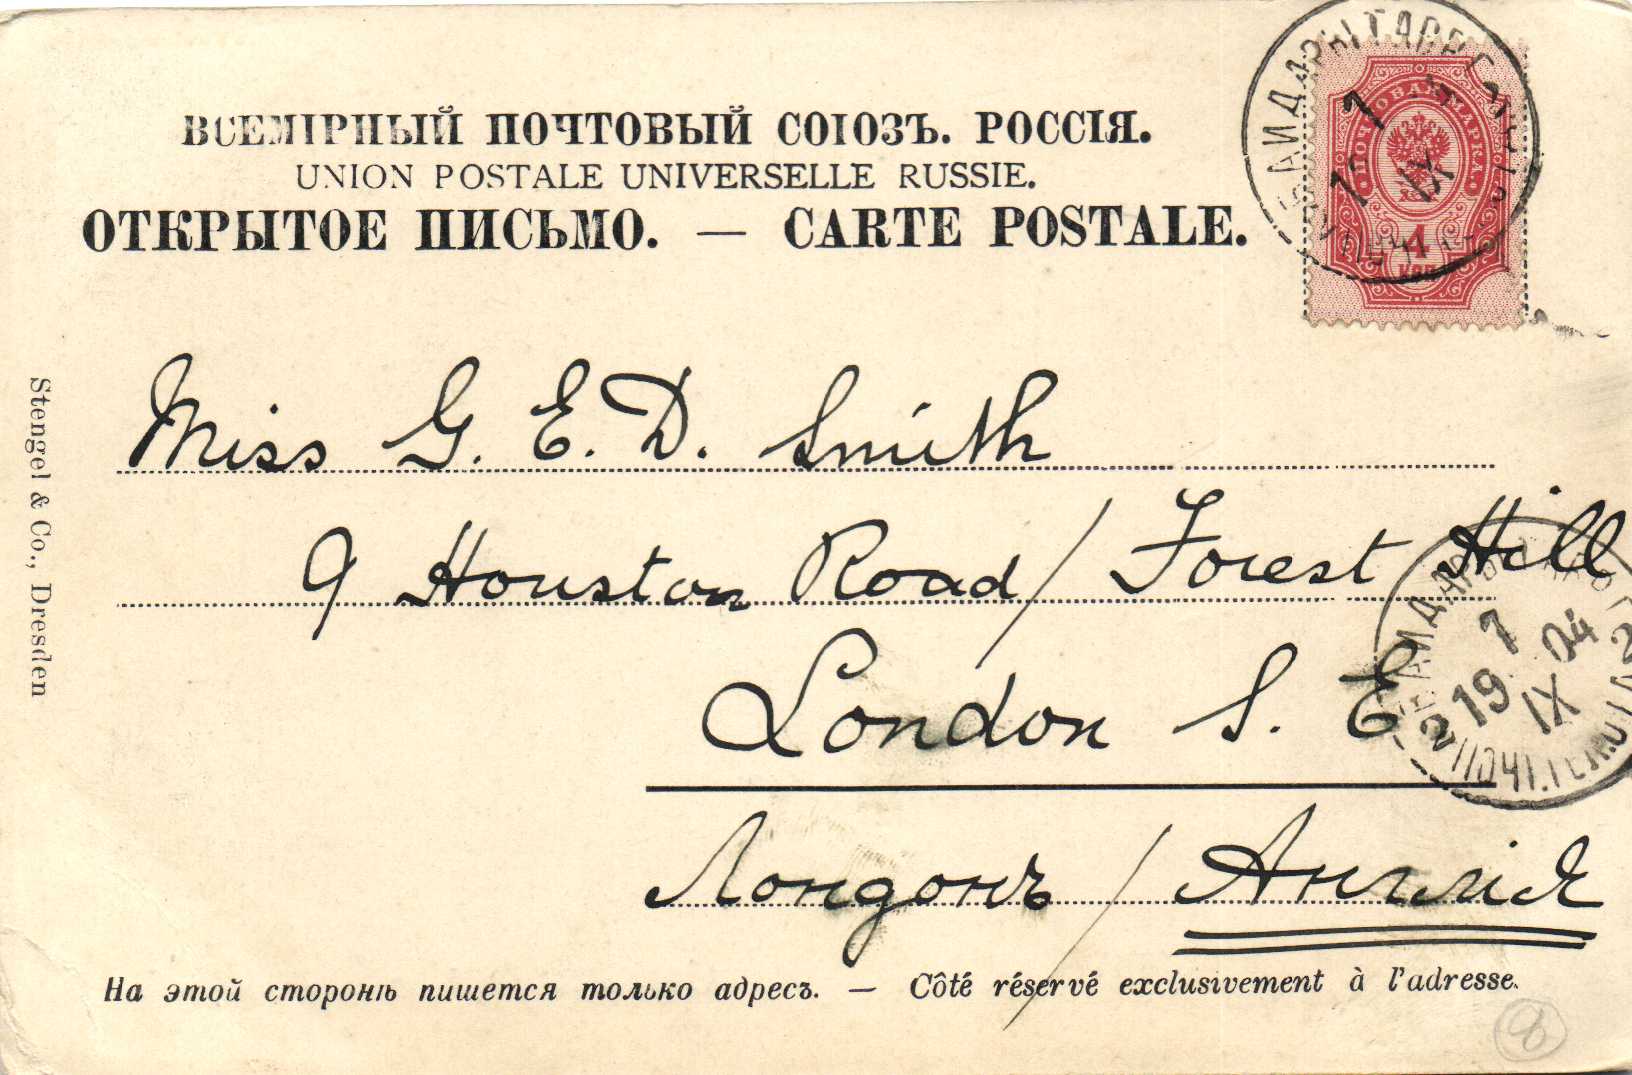 ВСЕМІРНЫЙ ПОЧТОВЫЙ СОЮЗЪ. РОССІЯ.
UNION POSTALE UNIVERSELLE RUSSIE.
ОТКРЫТОЕ ПИСЬМО. — CARTE POSTALE.
ПОЧТОВАЯ МАРКА
4
КОП
7
19
IX
Stengel & Co., Dresden
Miss G. E. D. Smith
9 Houston Road / Forest Hill
London S. E
7
19 04
IX
2
Лондонъ / Англія
На этой сторонѣ пишется только адресъ. — Côté réservé exclusivement à l'adresse.